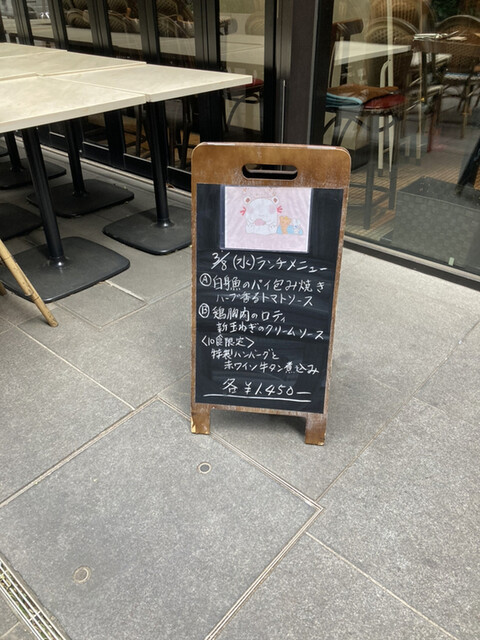 3/8 (水) ランチメニュー
Ⓐ 白身魚のパイ包み焼き
ハーブ香るトマトソース
Ⓑ 鶏胸肉のロティ
新玉ねぎのクリームソース
〈10食限定〉
特製ハンバーグと
赤ワイン牛タン煮込み
各 ¥1,450-